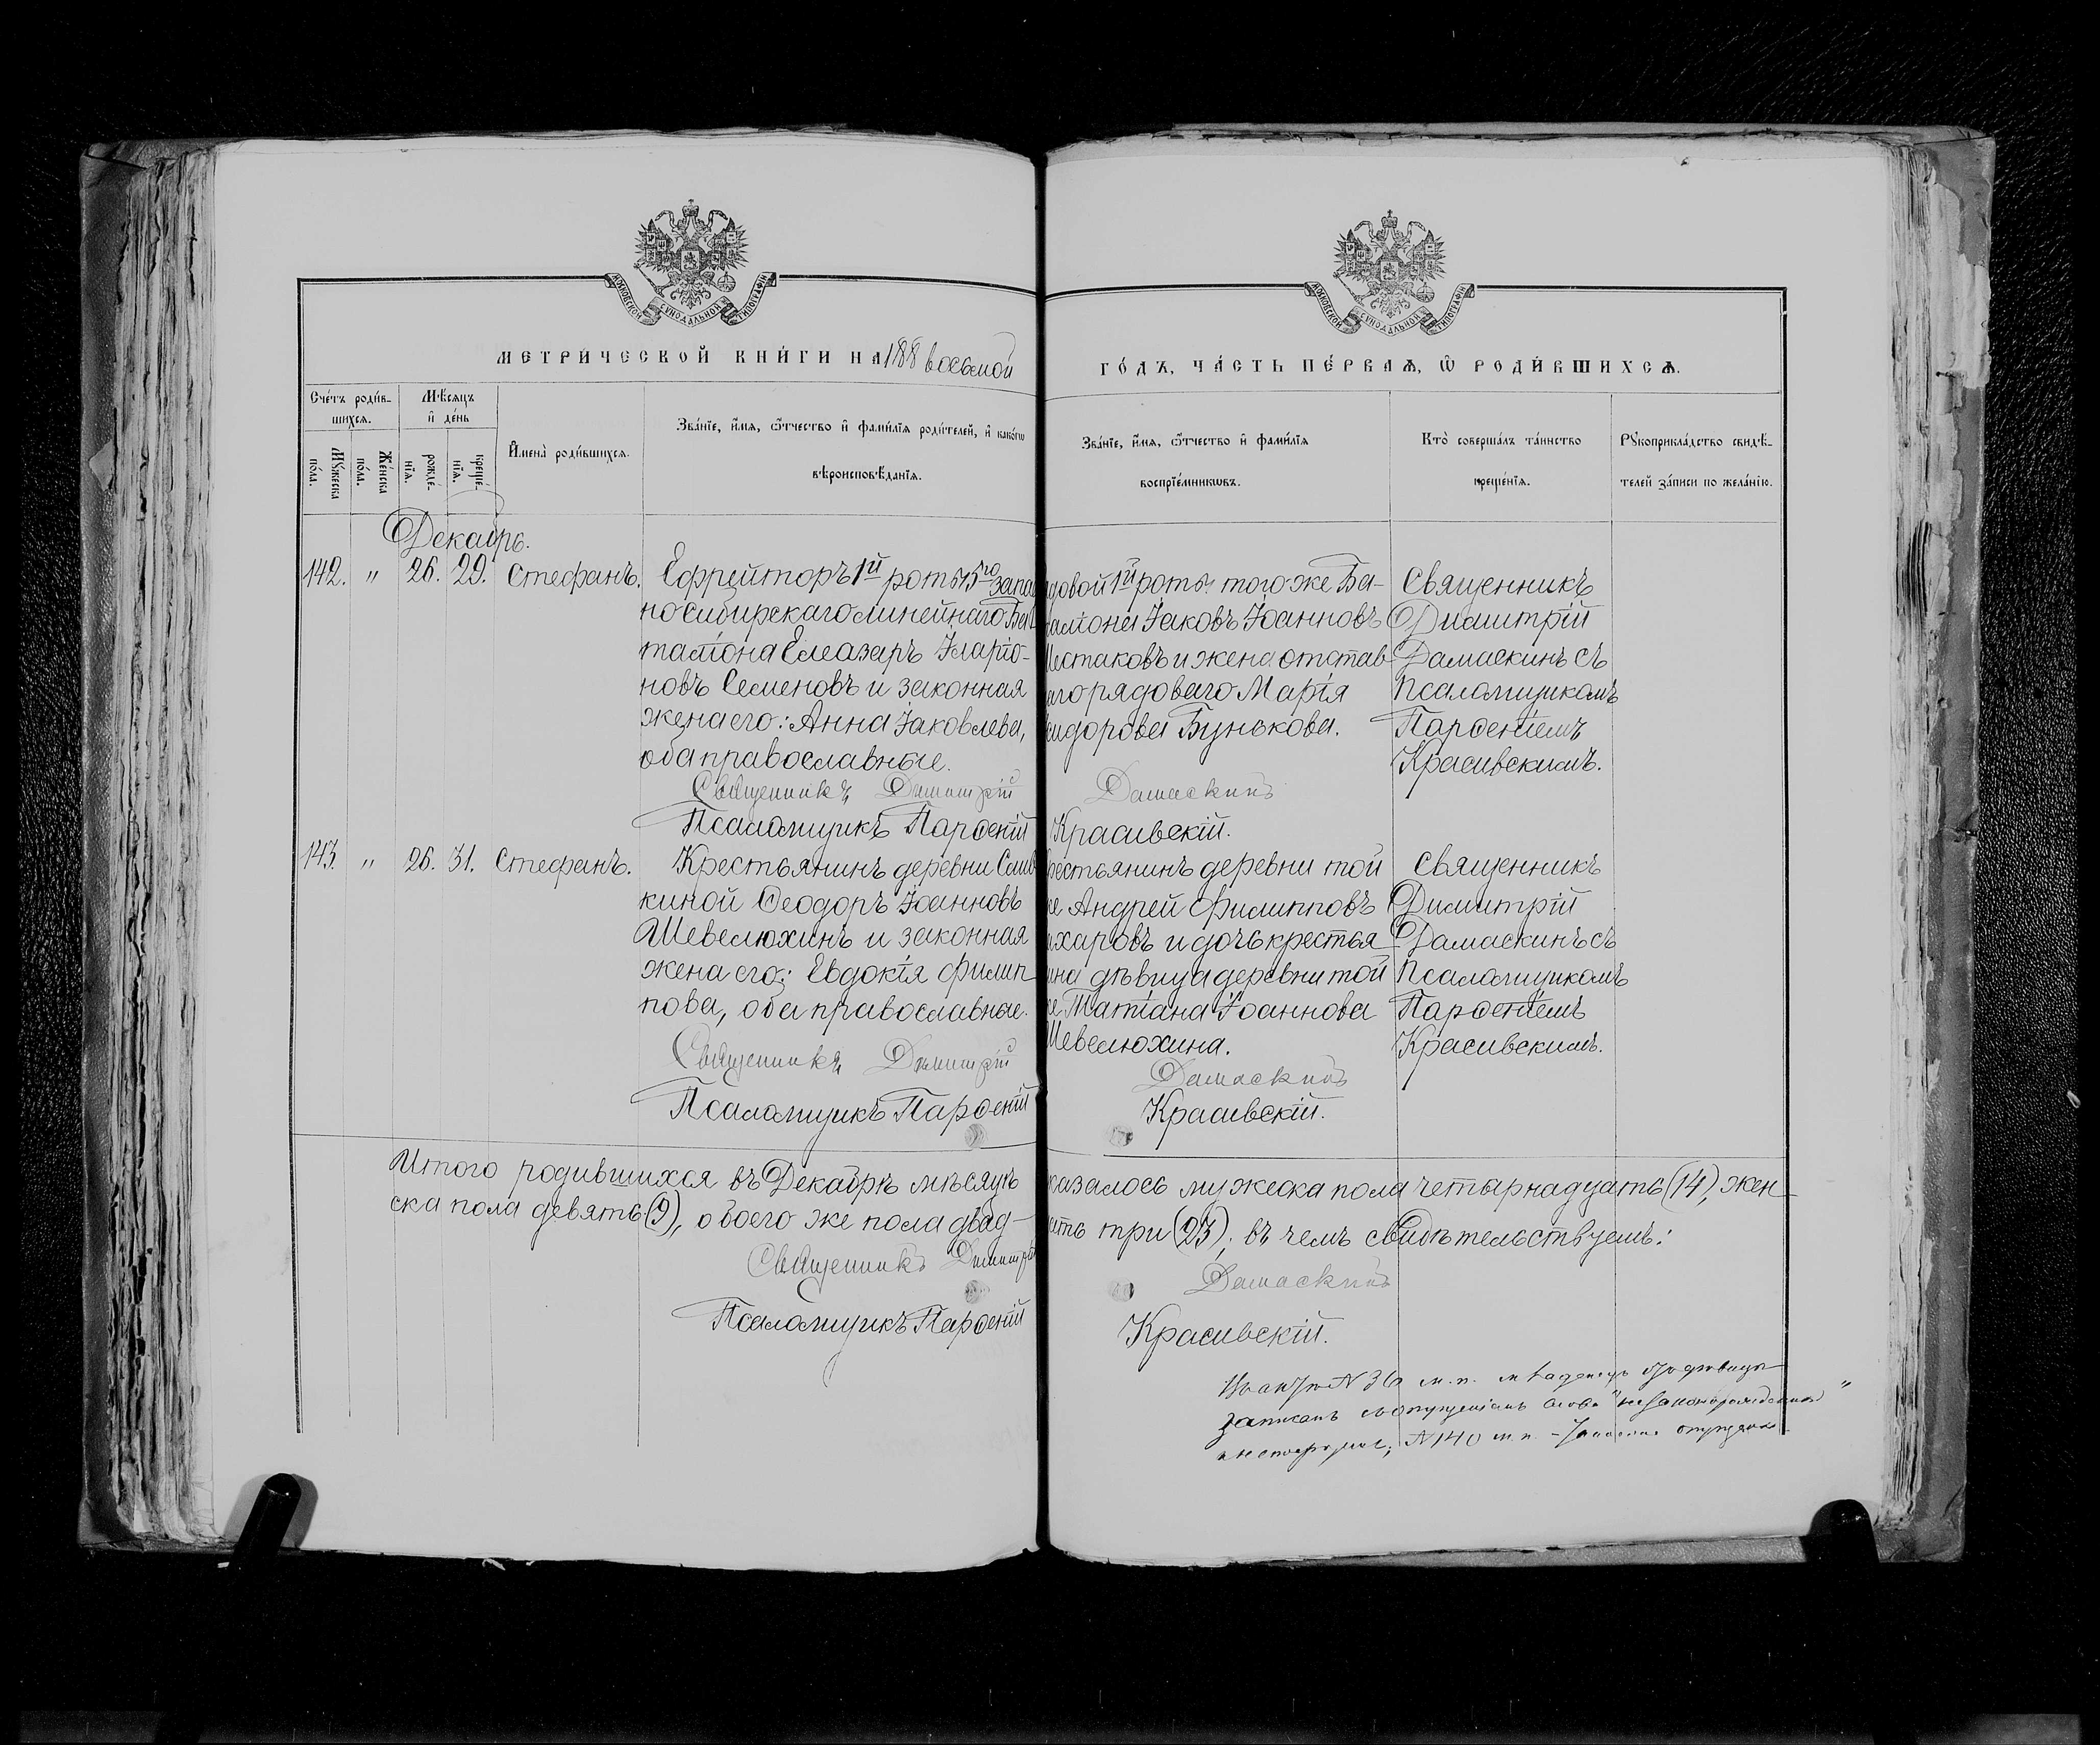 МОСКОВСКОЙ СѴНОДАЛЬНОЙ ТИПОГРАФІИ
МОСКОВСКОЙ СѴНОДАЛЬНОЙ ТИПОГРАФІИ
МЕТРИ́ЧЕСКОЙ КНИ́ГИ НА 188 восьмой
ГО́ДЪ, ЧА́СТЬ ПЕ́РВАѦ, Ѽ РОДИ́ВШИХСѦ.
Сче́тъ роди́в-
шихсѧ.
Мꙋ́жеска по́ла.
Же́нска по́ла.
Мѣ́сяцъ
и҆ де́нь
рожде́-
нїѧ.
креще́-
нїѧ.
И҆мена̀ роди́вшихсѧ.
Зва́нїе, и҆́мѧ, ѻ҆́тчество и҆ фами́лїѧ роди́телей, и҆ како́гѡ
вѣроисповѣ́данїѧ.
Зва́нїе, и҆́мѧ, ѻ҆́тчество и҆ фами́лїѧ
воспрїе́мникѡвъ.
Кто̀ соверша́лъ та́инство
креще́нїѧ.
Рꙋкоприкла́дство свидѣ́-
телей за́писи по жела́нїю.
Декабрь.
142. " 26. 29. Стефанъ.
Ефрейторъ 1й роты 5го Запад
но Сибирскаго линейнаго Ба
таліона Елеазаръ Иларіо-
новъ Семеновъ и законная
жена его: Анна Іаковлева,
оба православные.
Священникъ Димитрій
Псаломщикъ Парѳеній
довой 1й роты того же Ба-
таліона Іаковъ Іоанновъ
Шестаковъ и жена отстав
аго рядоваго Марія
сидорова Бунькова.
Дамаскинъ
Красивскій.
Священникъ
Димитрій
Дамаскинъ съ
псаломщикомъ
Парѳеніемъ
Красивскимъ.
143. " 26. 31. Стефанъ.
Крестьянинъ деревни Слив
киной Ѳеодоръ Іоанновъ
Шевелюхинъ и законная
жена его: Евдокія Филип-
пова, оба православные.
Священникъ Димитрій
Псаломщикъ Парѳеній
рестьянинъ деревни той
же Андрей Филипповъ
ахаровъ и дочь крестья-
нина дѣвица деревни той
же Татіана Іоаннова
Шевелюхина.
Дамаскинъ
Красивскій.
Священникъ
Димитрій
Дамаскинъ съ
псаломщикомъ
Парѳеніемъ
Красивскимъ.
Итого родившихся въ Декабрѣ мѣсяцѣ казалось мужеска пола четырнадцать (14), жен-
ска пола девять (9), обоего же пола двад- цать три (23), въ чемъ свидѣтельствуемъ:
Священникъ Димитрій Дамаскинъ
Псаломщикъ Парѳеній Красивскій.
№ 36 м. п. младенецъ дѣвицы
записанъ слова "незаконнорожденный"
№ 140 м. п.